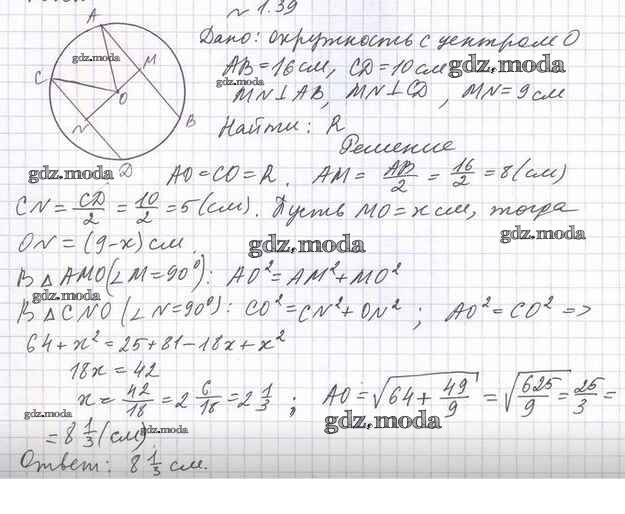 № 1.39
A
C
M
O
N
B
D
Дано: окружность с центром O
AB = 16 см, CD = 10 см
MN ⊥ AB, MN ⊥ CD, MN = 9 см
Найти: R
Решение
AO = CO = R. AM = AB/2 = 16/2 = 8 (см)
CN = CD/2 = 10/2 = 5 (см). Пусть MO = x см, тогда
ON = (9-x) см.
В △ AMO (∠M = 90°): AO² = AM² + MO²
В △ CNO (∠N = 90°): CO² = CN² + ON² ; AO² = CO² =>
64 + x² = 25 + 81 - 18x + x²
18x = 42
x = 42/18 = 2 6/18 = 2 1/3 ; AO = √(64 + 49/9) = √(625/9) = 25/3 =
= 8 1/3 (см)
Ответ: 8 1/3 см.
gdz.moda
gdz.moda
gdz.moda
gdz.moda
gdz.moda
gdz.moda
gdz.moda
gdz.moda
gdz.moda
gdz.moda